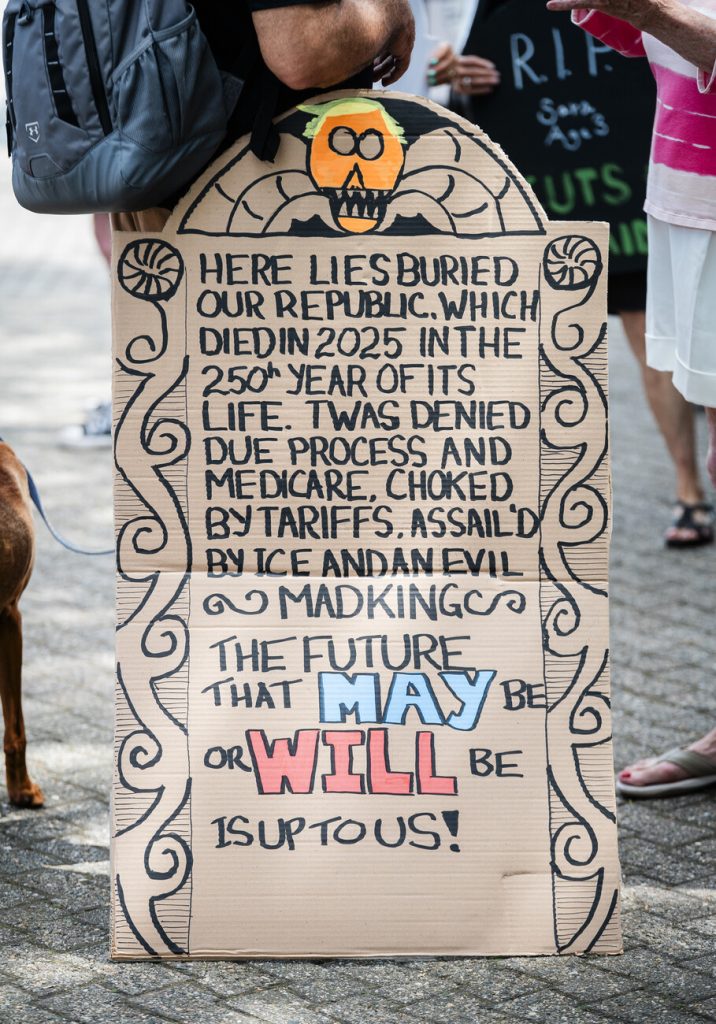 R.I.P.
Sara
Ages
CUTS
HERE LIES BURIED
OUR REPUBLIC. WHICH
DIED IN 2025 IN THE
250th YEAR OF ITS
LIFE. TWAS DENIED
DUE PROCESS AND
MEDICARE, CHOKED
BY TARIFFS, ASSAIL'D
BY ICE AND AN EVIL
MAD KING
THE FUTURE
THAT MAY BE
OR WILL BE
IS UP TO US!